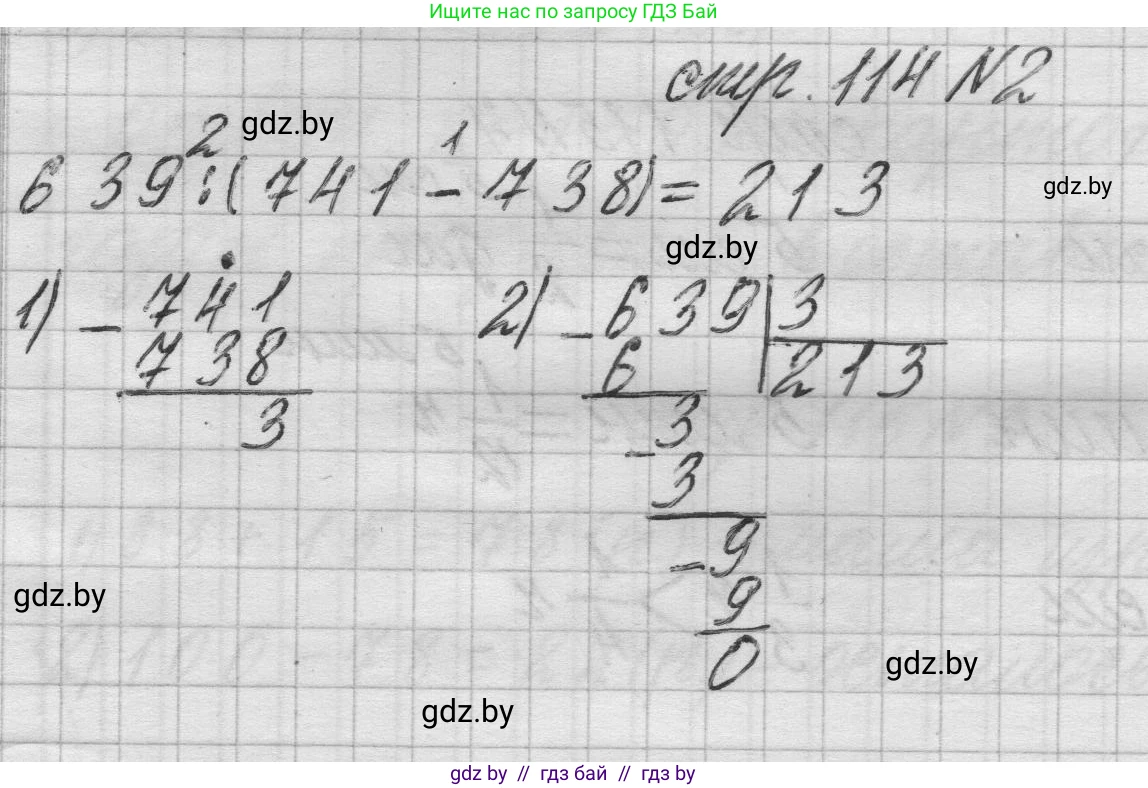 Ищите нас по запросу ГДЗ Бай
стр. 114 №2
gdz.by
2 1
639:(741-738)=213
gdz.by
gdz.by
1) - 741
738
3
2) - 639 | 3
6 213
- 3
3
- 9
9
0
gdz.by
gdz.by
gdz.by
gdz by // гдз бай // гдз by